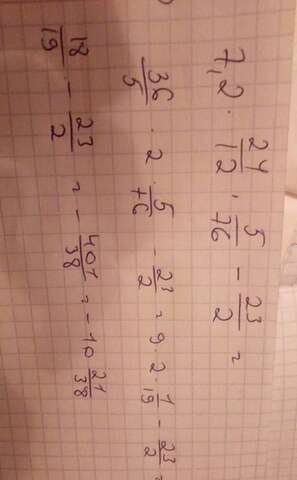 7,2 · 24/12 · 5/76 - 23/2 =
36/5 · 2 · 5/76 - 23/2 = 9 · 2 · 1/19 - 23/2 =
18/19 - 23/2 = - 401/38 = - 10 21/38